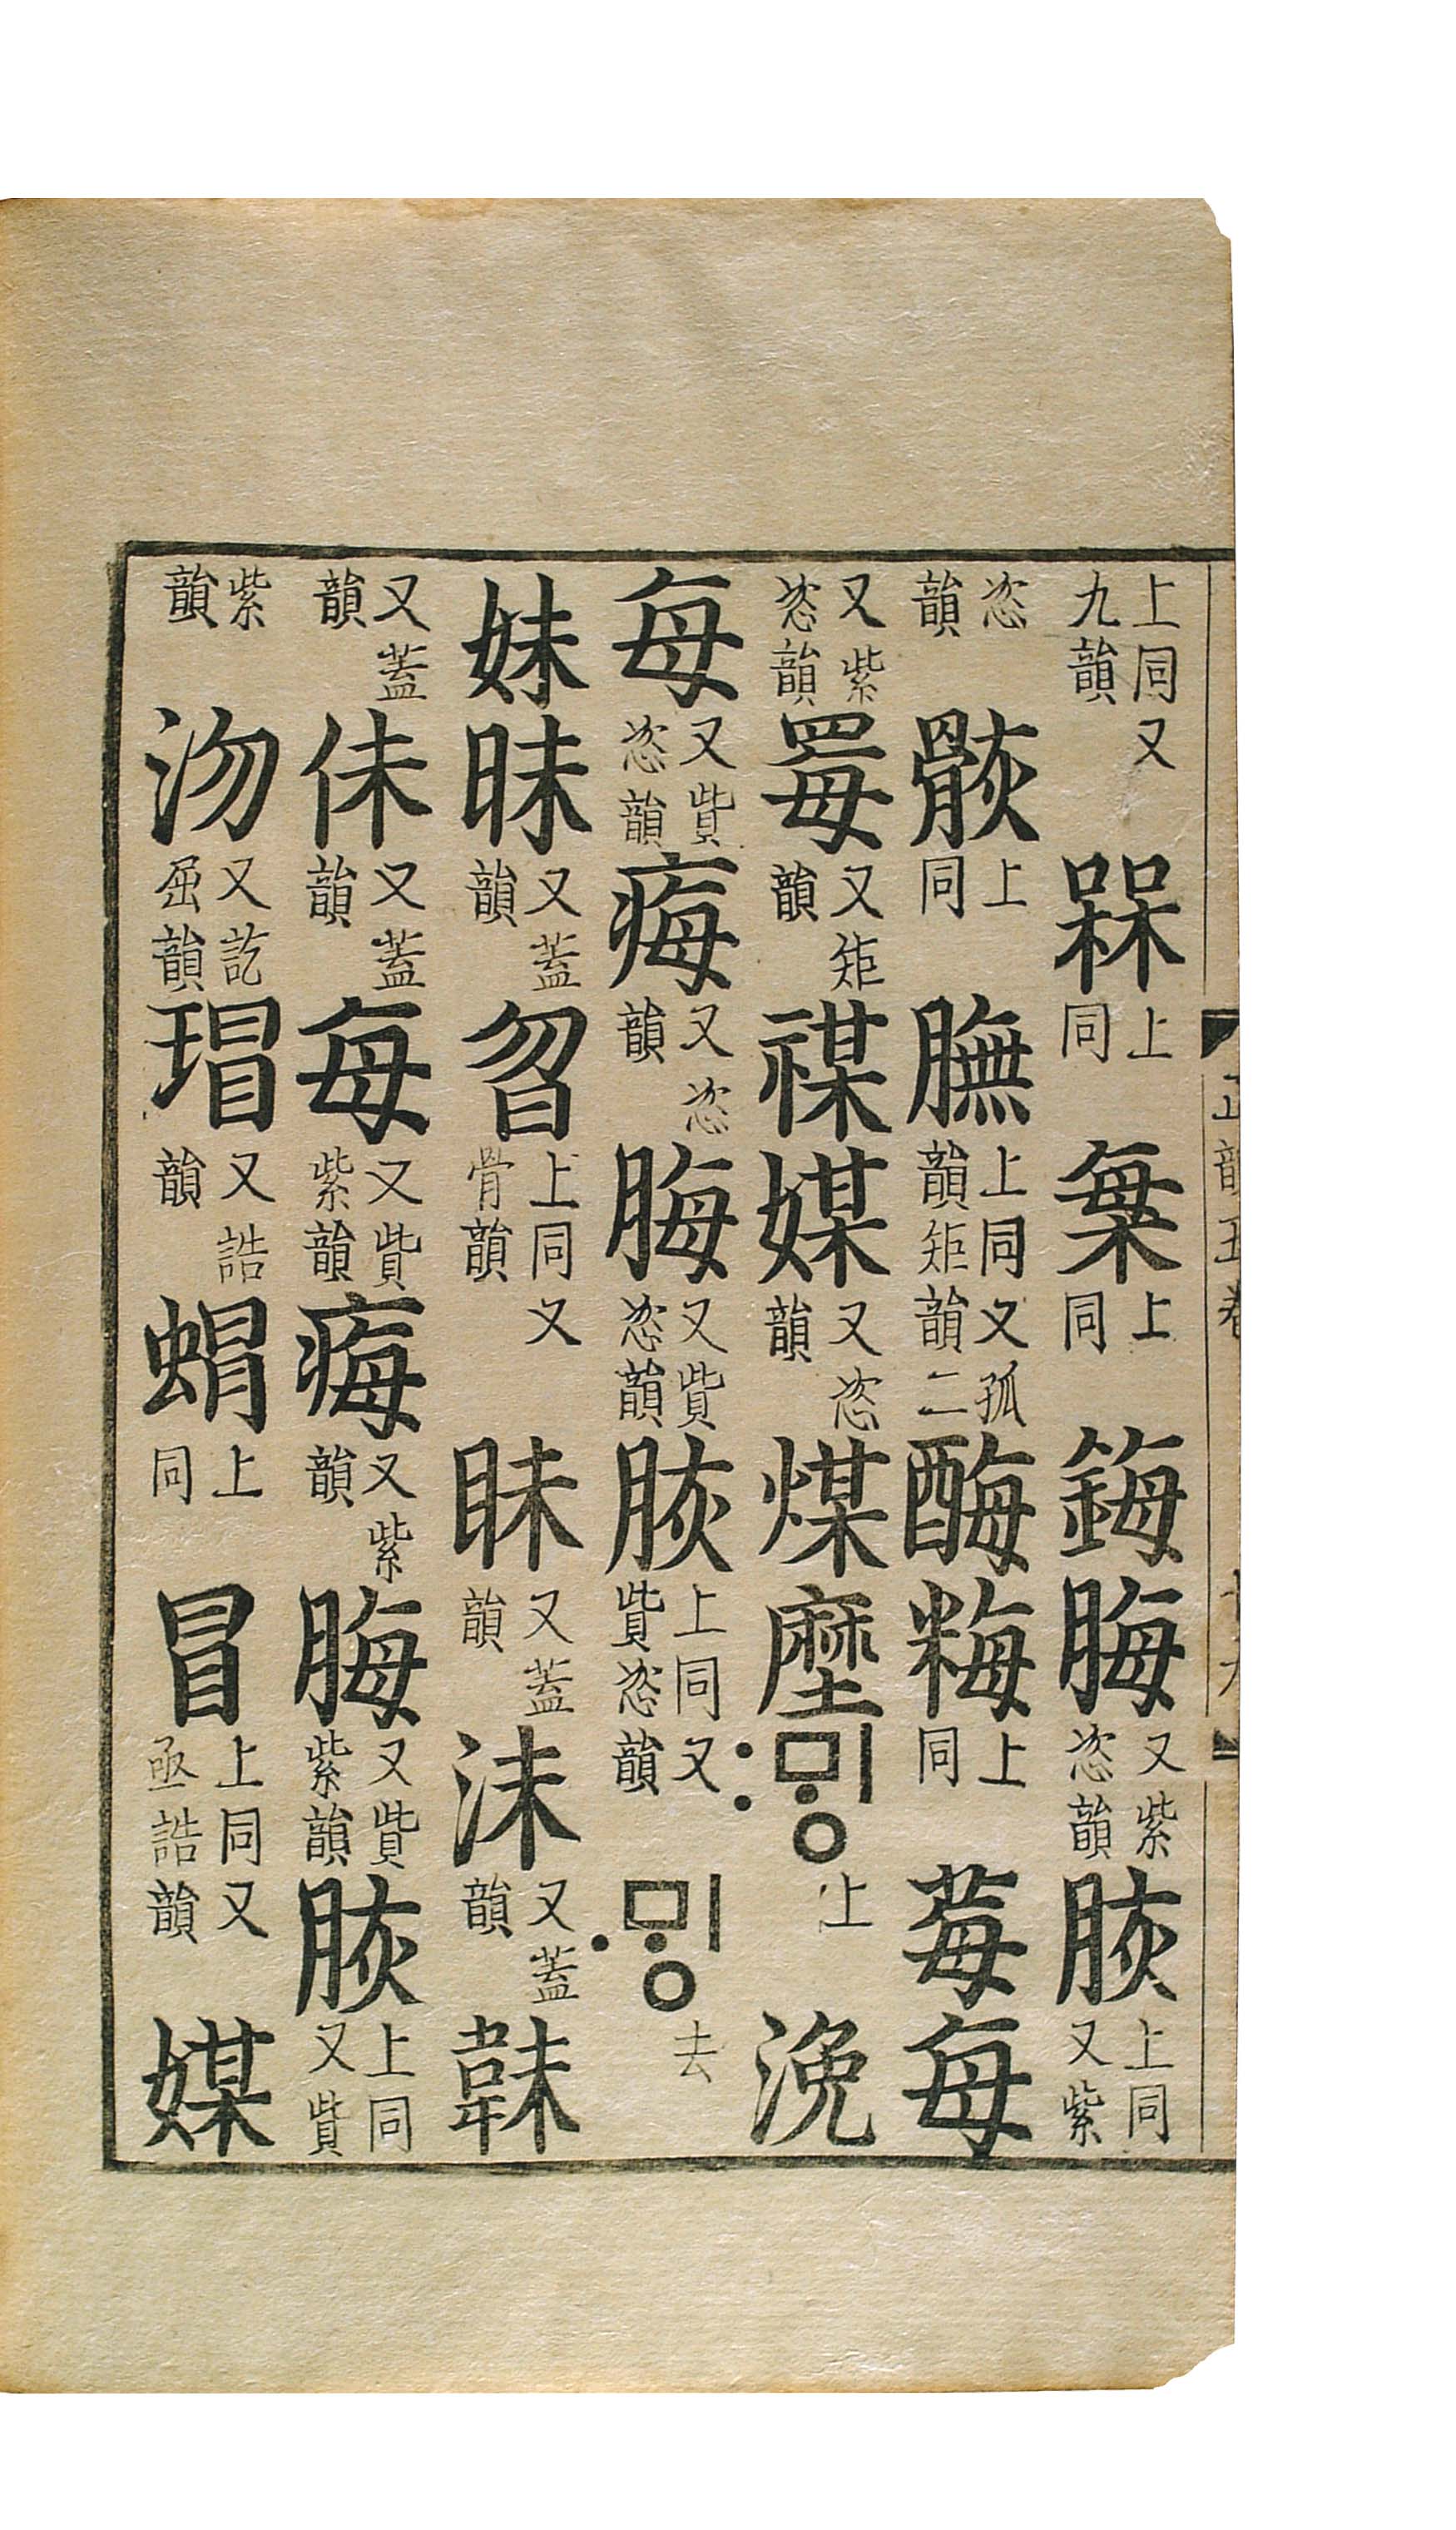 上同又九韻 槑上同 槖上同 鋂 脢又紫恣韻 脄上同又紫
恣韻 䯆上同 膴上同又孤韻矩韻二 酶 䊈上同 莓 每
又紫恣韻 罞又矩韻 禖 媒又恣韻 煤 塺 :ᄆᆡᆼ上 浼
每又貲恣韻 痗又恣韻 脢又貲恣韻 脄上同又貲恣韻 ·ᄆᆡᆼ去
妹 昧又蓋韻 曶上同又骨韻 眛又蓋韻 沬又蓋韻 韎
又蓋韻 佅又蓋韻 每又貲紫韻 痗又紫韻 脢又貲紫韻 脄上同又貲
紫韻 沕又訖屈韻 瑁又誥韻 蝐上同 冒上同又亟誥韻 媒